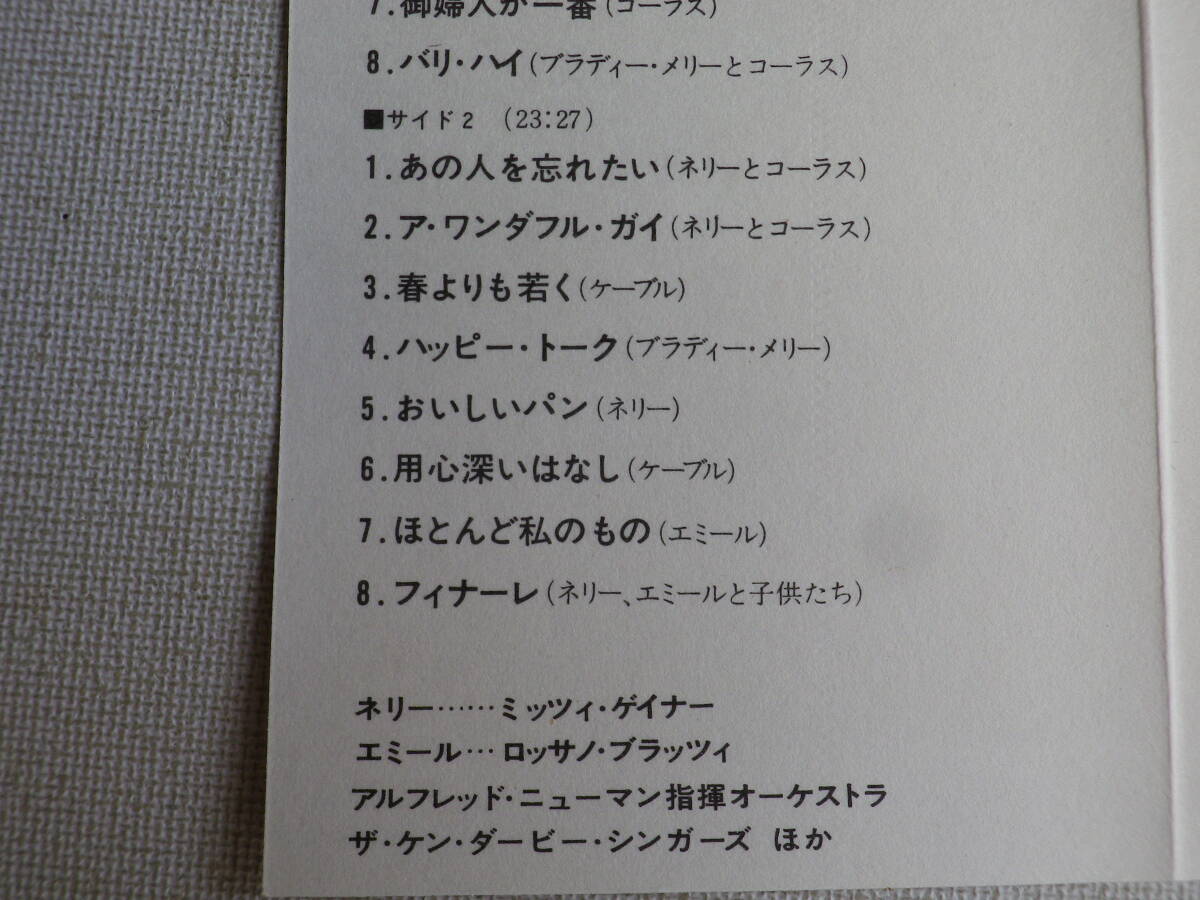 7.御婦人が一番(コーラス)
8.バリ・ハイ(ブラディー・メリーとコーラス)
■サイド2 (23:27)
1.あの人を忘れたい(ネリーとコーラス)
2.ア・ワンダフル・ガイ(ネリーとコーラス)
3.春よりも若く(ケーブル)
4.ハッピー・トーク(ブラディー・メリー)
5.おいしいパン(ネリー)
6.用心深いはなし(ケーブル)
7.ほとんど私のもの(エミール)
8.フィナーレ(ネリー、エミールと子供たち)
ネリー……ミッツィ・ゲイナー
エミール…ロッサノ・ブラッツィ
アルフレッド・ニューマン指揮オーケストラ
ザ・ケン・ダービー・シンガーズ ほか